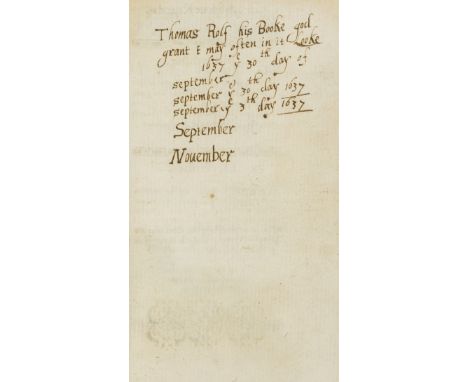 Thomas Rolf his Booke god
grant I may often in it Looke
1637 yᵉ 30ᵗʰ day of
september
september yᵉ 30ᵗʰ day 1637
september yᵉ 3ᵗʰ day 1637
September
Nouember